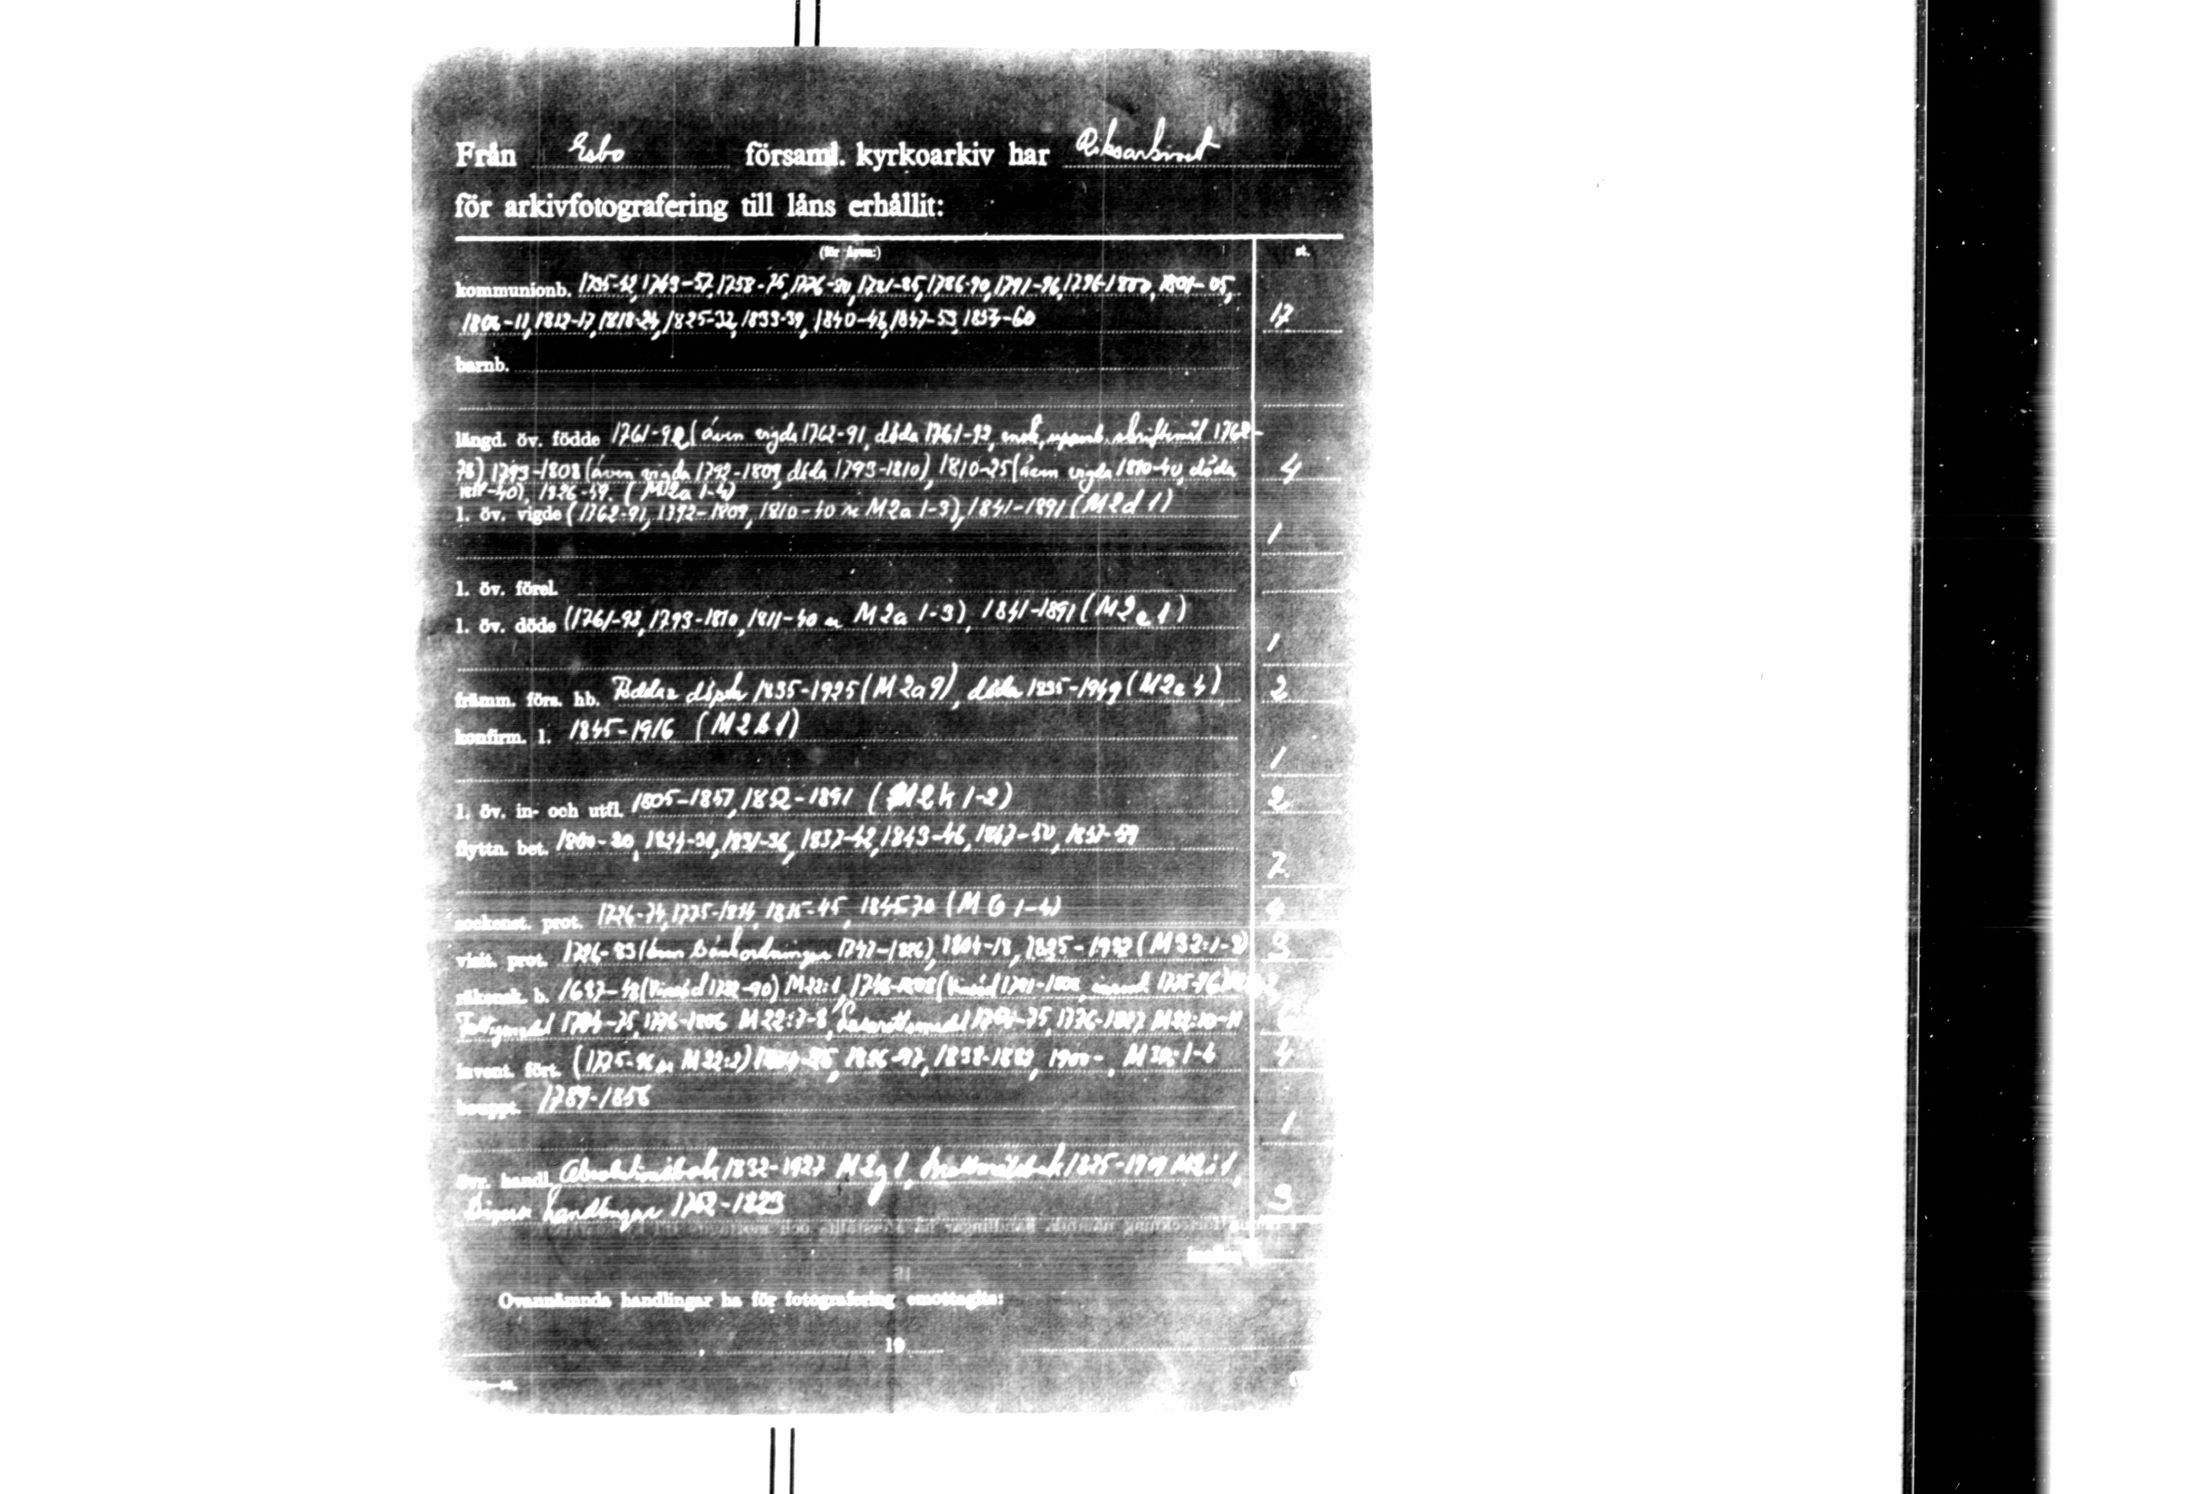 Från Esbo församl. kyrkoarkiv har Riksarkivet
för arkivfotografering till låns erhållit:
(för åren:) st.
kommunionb. 1735-42, 1743-57, 1758-75, 1776-80, 1781-85, 1786-90, 1791-96, 1796-1800, 1801-05,
1806-11, 1812-17, 1818-24, 1825-32, 1833-39, 1840-46, 1847-53, 1854-60 17
barnb.
längd. öv. födde 1761-92 (även vigda 1762-91, döda 1761-92, ensk. uppenb. skriftemål 1762-
78) 1793-1808 (även vigda 1792-1809, döda 1793-1810), 1810-25 (även vigda 1810-40, döda 4
1811-40), 1826-59. (M2a 1-4)
l. öv. vigde (1762-91, 1792-1809, 1810-40 se M2a 1-3), 1841-1891 (M2d 1)
1
l. öv. förel.
l. öv. döde (1761-92, 1793-1810, 1811-40 se M2a 1-3), 1841-1891 (M2e 1)
1
främm. förs. hb. döpta 1835-1925 (M2a9), döda 1835-1949 (M2e4) 2
konfirm. l. 1845-1916 (M2b1)
1
l. öv. in- och utfl. 1805-1847, 1852-1891 (M2h 1-2) 2
flyttn. bet. 1800-20, 1824-30, 1831-36, 1837-42, 1843-46, 1847-50, 1857-59
7
sockenst. prot. 1726-74, 1775-1814, 1815-45, 1845-70 (MG 1-4) 4
visit. prot. 1726-83 (även bänkordningar 1747-1826), 1804-18, 1825-1932 (M32:1-3) 3
räkensk. b. 1687-48 M22:1,
1776-1806 M22:7-8, M22:10-11
invent. fört. (1775-96 se M22:2) 1838-1882, 1900-, M30:1-4 4
bouppt. 1789-1856
1
övr. handl. Absolutionsbok 1832-1927 M2g1, 1825-1909 M2i1,
Diverse handlingar 1752-1823 3
Ovannämnda handlingar ha för fotografering emottagits:
19